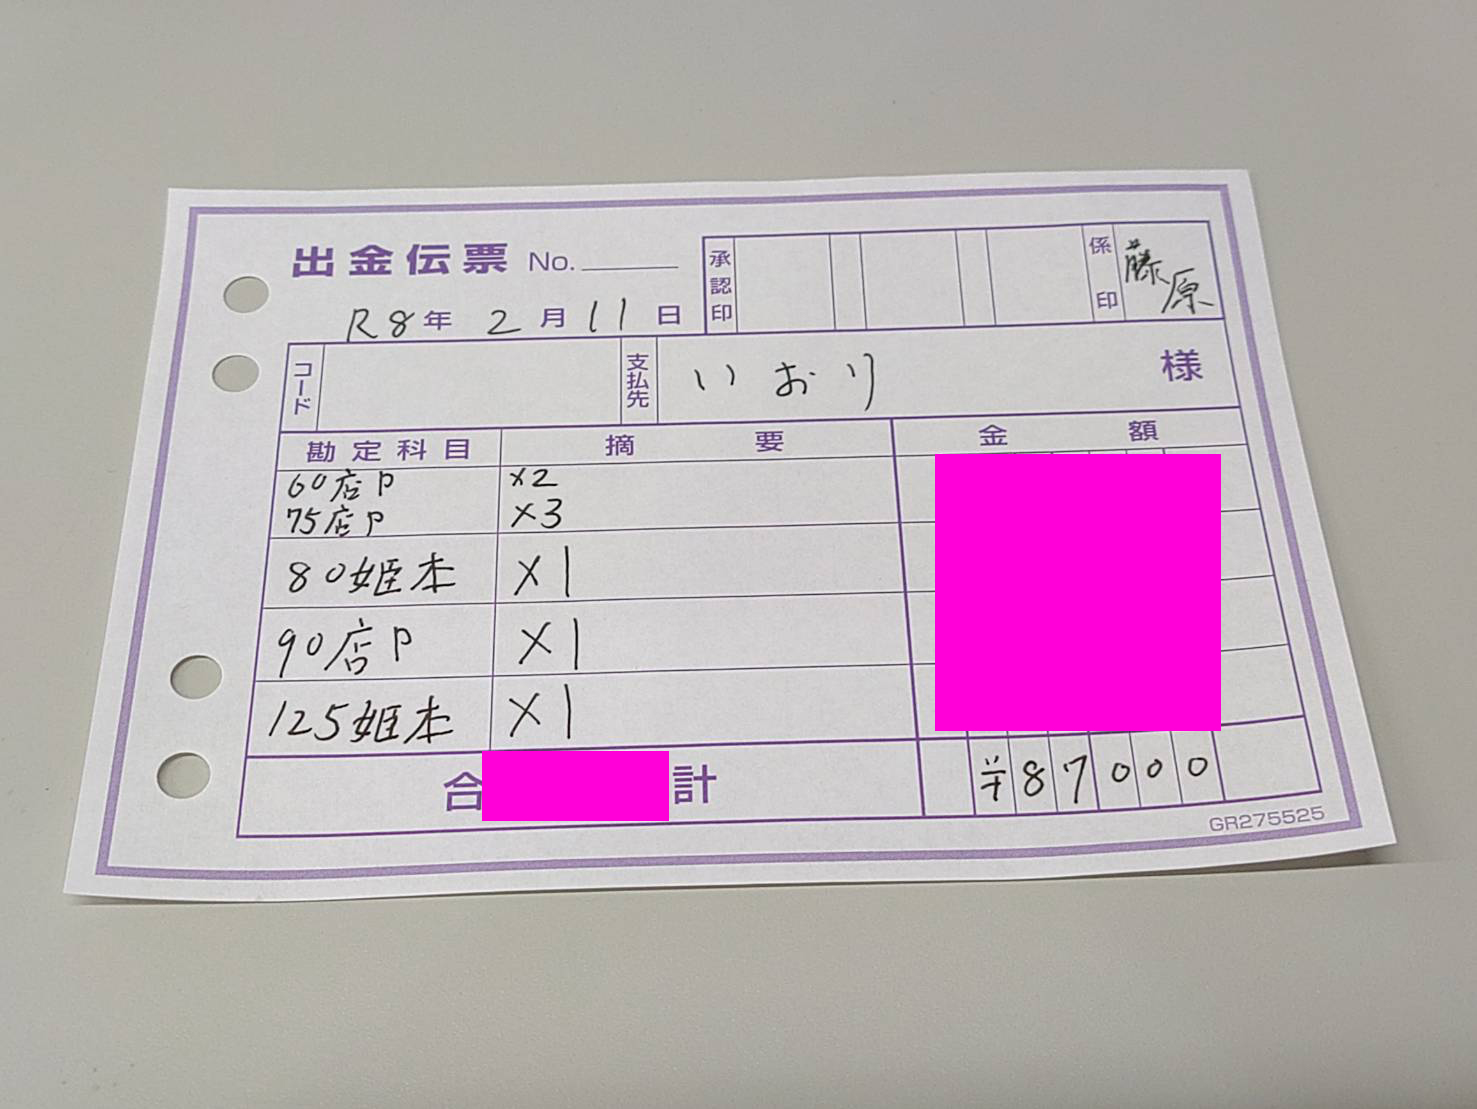 出金伝票 No.
承認印
係印 藤原
R8年 2月 11日
コード
支払先 いおり 様
勘定科目 摘要 金額
60店P ×2
75店P ×3
80姫本 ×1
90店P ×1
125姫本 ×1
合計 ¥87000
GR275525